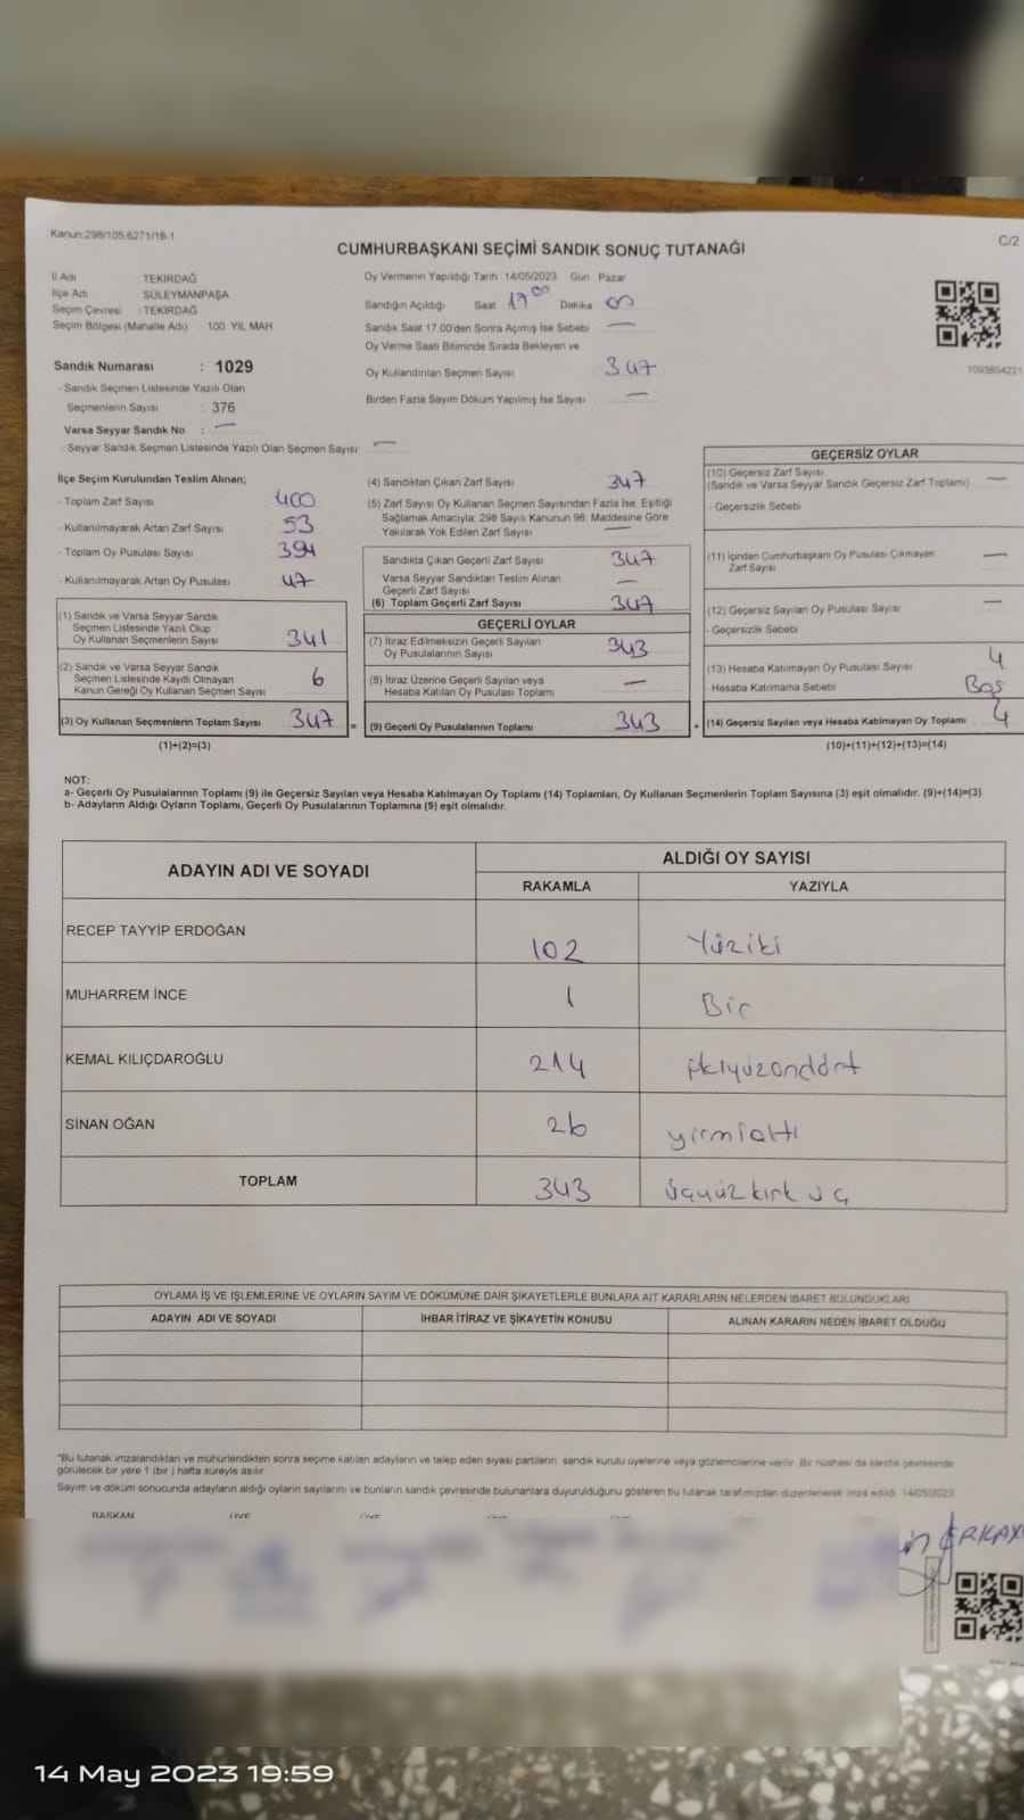 Kanun:298/105,6271/18-1
C/2
CUMHURBAŞKANI SEÇİMİ SANDIK SONUÇ TUTANAĞI
İl Adı : TEKİRDAĞ
İlçe Adı : SÜLEYMANPAŞA
Seçim Çevresi : TEKİRDAĞ
Seçim Bölgesi (Mahalle Adı) : 100. YIL MAH
Sandık Numarası : 1029
- Sandık Seçmen Listesinde Yazılı Olan
Seçmenlerin Sayısı : 376
Varsa Seyyar Sandık No : —
- Seyyar Sandık Seçmen Listesinde Yazılı Olan Seçmen Sayısı —
Oy Vermenin Yapıldığı Tarih :14/05/2023 Gün : Pazar
Sandığın Açıldığı Saat 17 00 Dakika 00
Sandık Saat 17.00'den Sonra Açılmış İse Sebebi —
Oy Verme Saati Bitiminde Sırada Bekleyen ve
Oy Kullandırılan Seçmen Sayısı 347
Birden Fazla Sayım Döküm Yapılmış İse Sayısı —
İlçe Seçim Kurulundan Teslim Alınan;
- Toplam Zarf Sayısı 400
- Kullanılmayarak Artan Zarf Sayısı 53
- Toplam Oy Pusulası Sayısı 394
- Kullanılmayarak Artan Oy Pusulası 47
(1) Sandık ve Varsa Seyyar Sandık
Seçmen Listesinde Yazılı Olup
Oy Kullanan Seçmenlerin Sayısı 341
(2) Sandık ve Varsa Seyyar Sandık
Seçmen Listesinde Kaydı Olmayan
Kanun Gereği Oy Kullanan Seçmen Sayısı 6
(3) Oy Kullanan Seçmenlerin Toplam Sayısı 347 =
(1)+(2)=(3)
(4) Sandıktan Çıkan Zarf Sayısı 347
(5) Zarf Sayısı Oy Kullanan Seçmen Sayısından Fazla İse, Eşitliği
Sağlamak Amacıyla; 298 Sayılı Kanunun 98. Maddesine Göre
Yakılarak Yok Edilen Zarf Sayısı —
Sandıkta Çıkan Geçerli Zarf Sayısı 347
Varsa Seyyar Sandıktan Teslim Alınan
Geçerli Zarf Sayısı —
(6) Toplam Geçerli Zarf Sayısı 347
GEÇERLİ OYLAR
(7) İtiraz Edilmeksizin Geçerli Sayılan
Oy Pusulalarının Sayısı 343
(8) İtiraz Üzerine Geçerli Sayılan veya
Hesaba Katılan Oy Pusulası Toplamı —
(9) Geçerli Oy Pusulalarının Toplamı 343 +
GEÇERSİZ OYLAR
(10) Geçersiz Zarf Sayısı
(Sandık ve Varsa Seyyar Sandık Geçersiz Zarf Toplamı) —
- Geçersizlik Sebebi
(11) İçinden Cumhurbaşkanı Oy Pusulası Çıkmayan
Zarf Sayısı —
(12) Geçersiz Sayılan Oy Pusulası Sayısı —
- Geçersizlik Sebebi
(13) Hesaba Katılmayan Oy Pusulası Sayısı 4
- Hesaba Katılmama Sebebi Boş
(14) Geçersiz Sayılan veya Hesaba Katılmayan Oy Toplamı 4
(10)+(11)+(12)+(13)=(14)
NOT:
a- Geçerli Oy Pusulalarının Toplamı (9) ile Geçersiz Sayılan veya Hesaba Katılmayan Oy Toplamı (14) Toplamları, Oy Kullanan Seçmenlerin Toplam Sayısına (3) eşit olmalıdır. (9)+(14)=(3)
b- Adayların Aldığı Oyların Toplamı, Geçerli Oy Pusulalarının Toplamına (9) eşit olmalıdır.
ADAYIN ADI VE SOYADI
ALDIĞI OY SAYISI
RAKAMLA YAZIYLA
RECEP TAYYİP ERDOĞAN 102 Yüziki
MUHARREM İNCE 1 Bir
KEMAL KILIÇDAROĞLU 214 ikiyüzondört
SİNAN OĞAN 26 yirmialtı
TOPLAM 343 üçyüz kırk üç
OYLAMA İŞ VE İŞLEMLERİNE VE OYLARIN SAYIM VE DÖKÜMÜNE DAİR ŞİKAYETLERLE BUNLARA AİT KARARLARIN NELERDEN İBARET BULUNDUKLARI
ADAYIN ADI VE SOYADI İHBAR İTİRAZ VE ŞİKAYETİN KONUSU ALINAN KARARIN NEDEN İBARET OLDUĞU
"Bu tutanak imzalandıktan ve mühürlendikten sonra seçime katılan adayların ve talep eden siyasi partilerin, sandık kurulu üyelerine veya gözlemcilerine verilir. Bir nüshası da sandık çevresinde
görülecek bir yere 1 (bir) hafta süreyle asılır.
Sayım ve döküm sonucunda adayların aldığı oyların sayılarını ve bunların sandık çevresinde bulunanlara duyurulduğunu gösteren bu tutanak tarafımızdan düzenlenerek imza edildi. 14/05/2023
BAŞKAN ÜYE ÜYE
14 May 2023 19:59